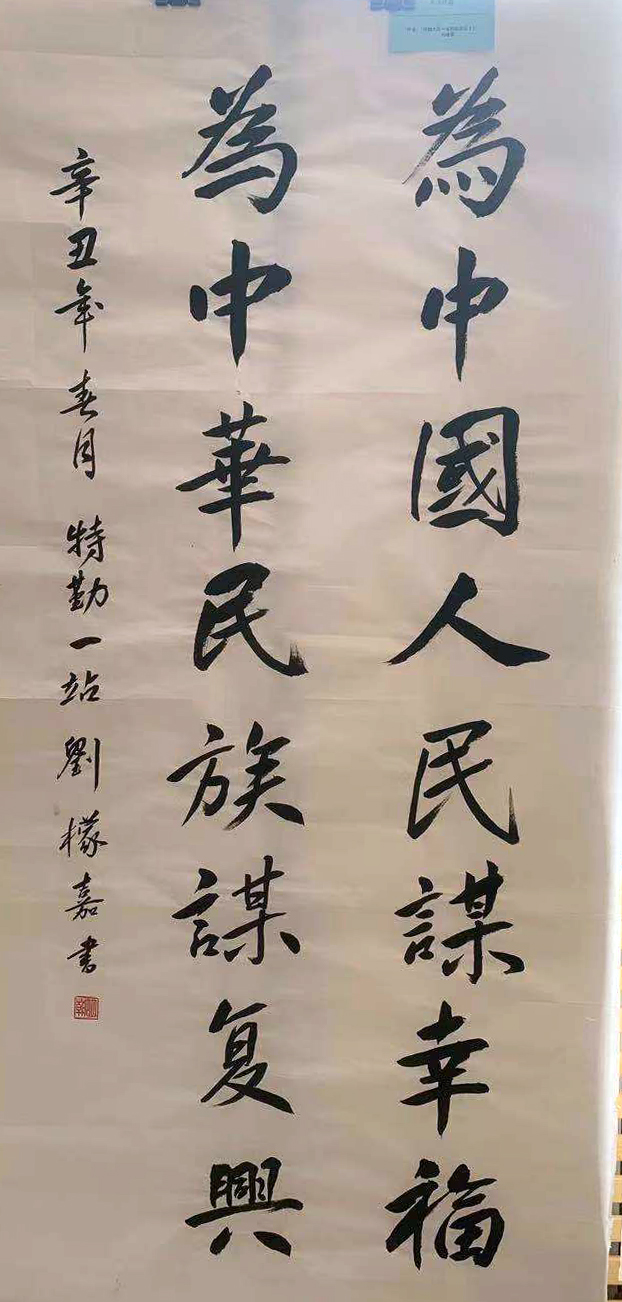 為中國人民謀幸福
為中華民族謀复興
辛丑年春月 特勤一站 劉檬嘉書